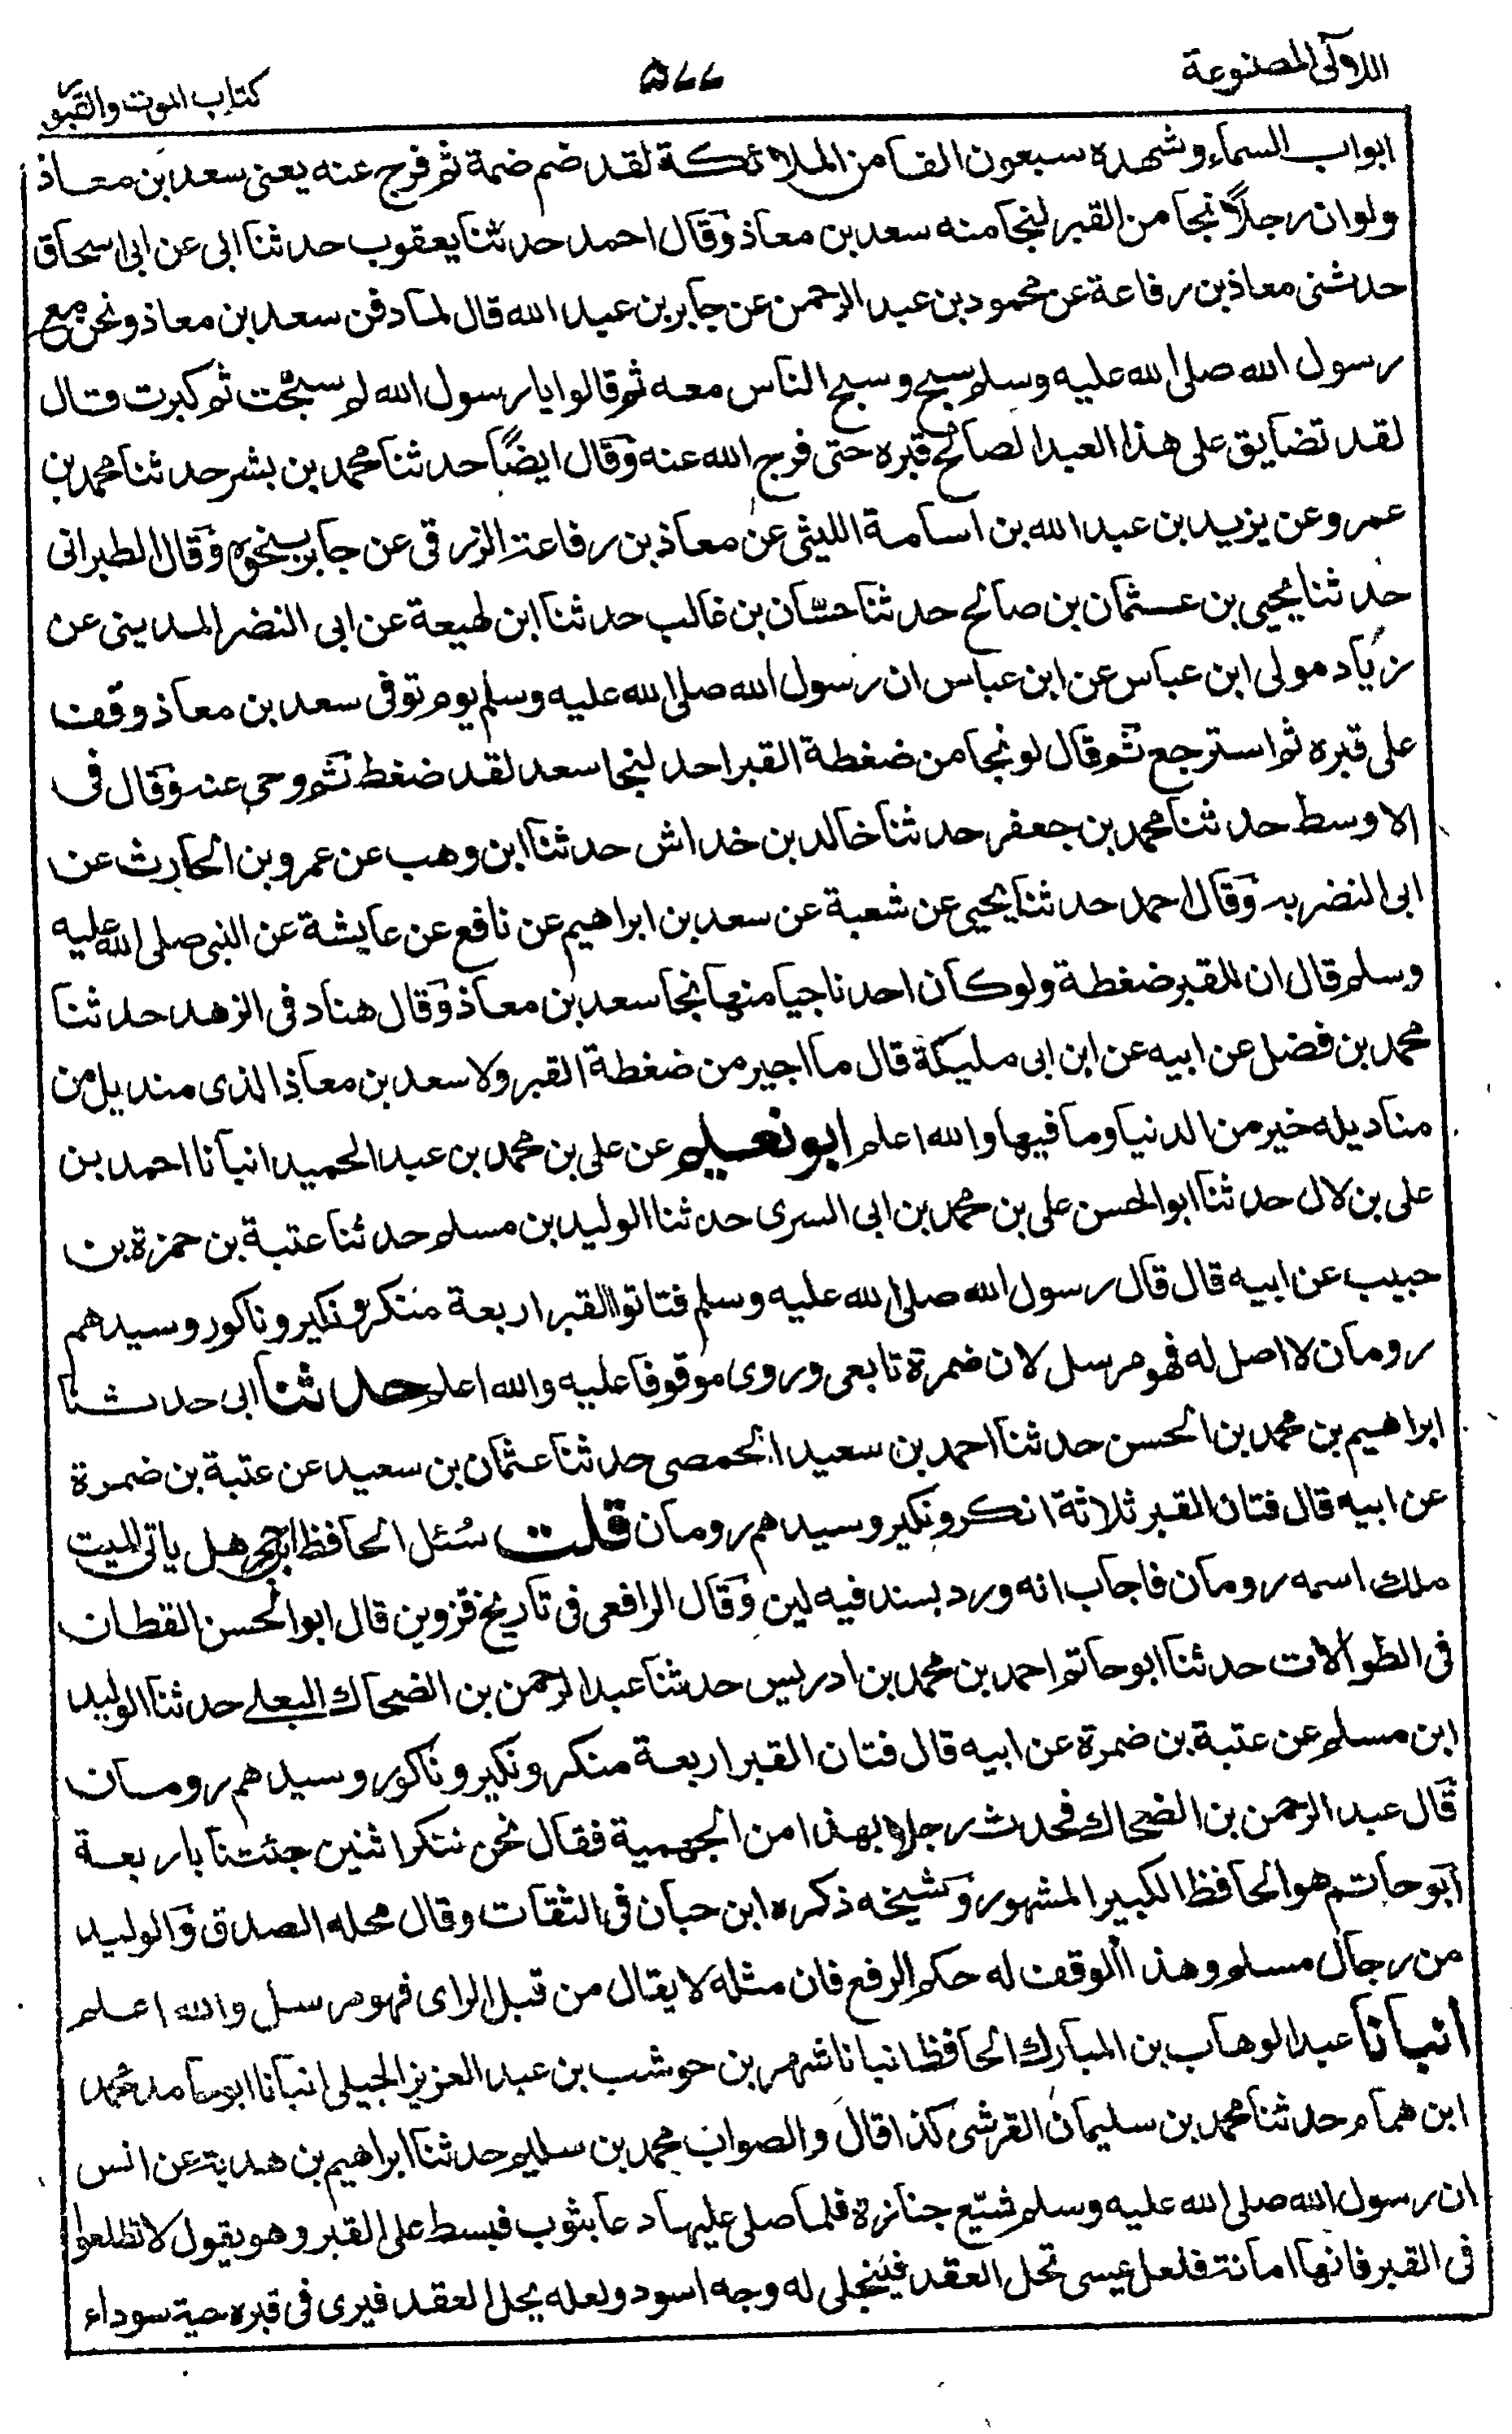 اللآلى المصنوعة
٥٧٧
كتاب الموت والقبور
ابواب السماء وشهده سبعون الفا من الملائكة لقد ضم ضمة ثم فرج عنه يعنى سعد بن معاذ
ولو ان رجلاً نجا من القبر لنجا منه سعد بن معاذ وقال احمد حدثنا يعقوب حدثنا ابى عن ابى اسحاق
حدثنى معاذ بن رفاعة عن محمود بن عبد الرحمن عن جابر بن عبد الله قال لما دفن سعد بن معاذ ونحن مع
رسول الله صلى الله عليه وسلم سبح وسبح الناس معه ثم قالوا يا رسول الله لم سبحت ثم كبرت قال
لقد تضايق على هذا العبد الصالح قبره حتى فرج الله عنه وقال ايضًا حدثنا محمد بن بشر حدثنا محمد بن
عمرو عن يزيد بن عبد الله بن اسامة الليثى عن معاذ بن رفاعة الزرقى عن جابر بنحوه وقال الطبرانى
حدثنا يحيى بن عثمان بن صالح حدثنا حسّان بن غالب حدثنا ابن لهيعة عن ابى النضر المدينى عن
زياد مولى ابن عباس عن ابن عباس ان رسول الله صلى الله عليه وسلم يوم توفى سعد بن معاذ وقف
على قبره ثم استرجع ثم قال لو نجا من ضغطة القبر احد لنجا سعد لقد ضغط ثم روحى عنه وقال فى
الاوسط حدثنا محمد بن جعفر حدثنا خالد بن خداش حدثنا ابن وهب عن عمرو بن الحارث عن
ابى النضر به وقال احمد حدثنا يحيى عن شعبة عن سعد بن ابراهيم عن نافع عن عايشة عن النبى صلى الله عليه
وسلم قال ان للقبر ضغطة ولو كان احد ناجيا منها نجا سعد بن معاذ وقال هناد فى الزهد حدثنا
محمد بن فضل عن ابيه عن ابن ابى مليكة قال ما اجير من ضغطة القبر ولا سعد بن معاذ الذى منديل من
مناديله خير من الدنيا وما فيها والله اعلم ابو نعيم عن على بن محمد بن عبد الحميد انبأنا احمد بن
على بن لال حدثنا ابو الحسن على بن محمد بن ابى السرى حدثنا الوليد بن مسلم حدثنا عتبة بن حمزة بن
حبيب عن ابيه قال قال رسول الله صلى الله عليه وسلم فتانوا القبر اربعة منكر ونكير وناكور وسيدهم
رومان لا اصل له فهو مرسل لان ضمرة تابعى وروى موقوفا عليه والله اعلم حدثنا ابى حدثنا
ابراهيم بن محمد بن الحسن حدثنا احمد بن سعيد الحمصى حدثنا عثمان بن سعيد عن عتبة بن ضمرة
عن ابيه قال فتان القبر ثلاثة انكر ونكير وسيدهم رومان قلت سُئل الحافظ ابن حجر هل ياتى الميت
ملك اسمه رومان فاجاب انه ورد بسند فيه لين وقال الرافعى فى تاريخ قزوين قال ابو الحسن القطان
فى الطوالات حدثنا ابو حاتم احمد بن محمد بن ادريس حدثنا عبد الرحمن بن الضحاك البعلى حدثنا الوليد
ابن مسلم عن عتبة بن ضمرة عن ابيه قال فتان القبر اربعة منكر ونكير وناكور وسيدهم رومان
قال عبد الرحمن بن الضحاك فحدث رجلا بهذا من الجهمية فقال نحن ننكر اثنين جئتنا باربعة
ابو حاتم هو الحافظ الكبير المشهور وشيخه ذكره ابن حبان فى الثقات وقال محله الصدق والوليد
من رجال مسلم وهذا الوقف له حكم الرفع فان مثله لا يقال من قبل الراى فهو مرسل والله اعلم
انبأنا عبد الوهاب بن المبارك الحافظ انبانا شهر بن حوشب بن عبد العزيز الجيلى انبأنا ابو حامد محمد
ابن همام حدثنا محمد بن سليمان القرشى كذا قال والصواب محمد بن سليم حدثنا ابراهيم بن هدبة عن انس
ان رسول الله صلى الله عليه وسلم شيّع جنازة فلما صلى عليها دعا بثوب فبسط على القبر وهو يقول لا تطلعوا
فى القبر فانها امانة فلعل عيسى تحل العقد فينجلى له وجه اسود ولعله يحل العقد فيرى فى قبره حية سوداء